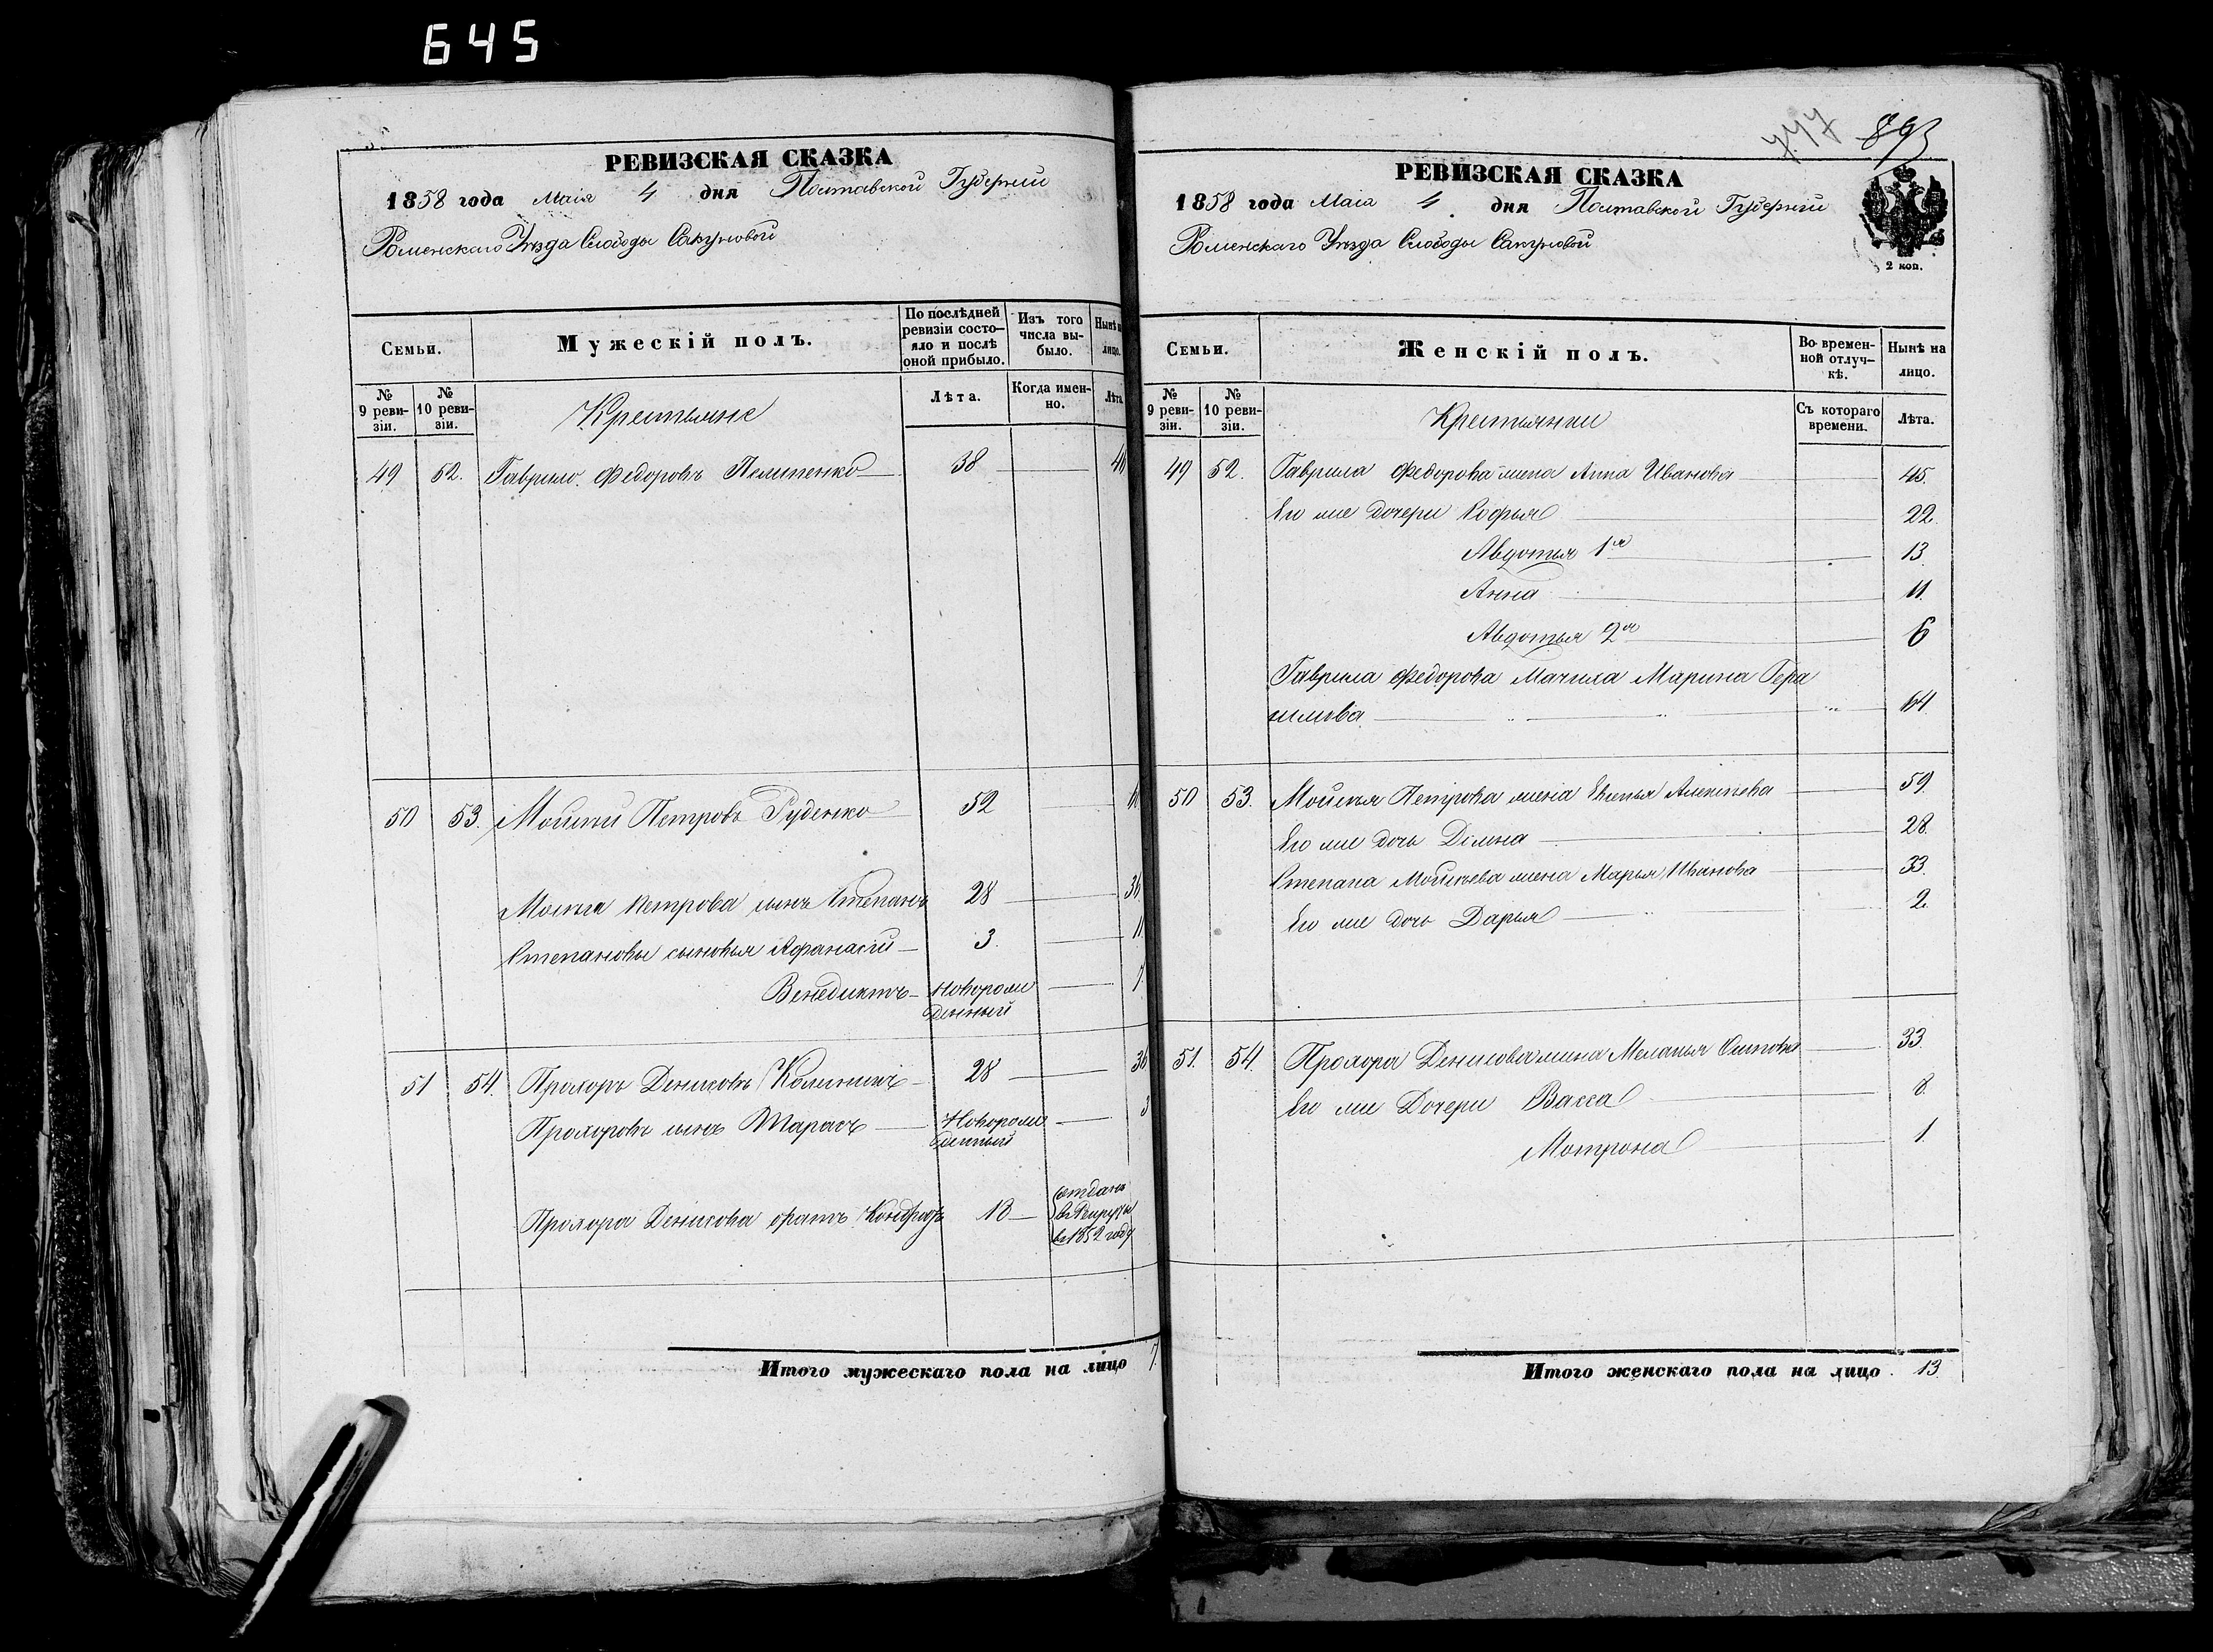 645
РЕВИЗСКАЯ СКАЗКА
1858 года Маія 4 дня Полтавской Губерніи
Роменскаго Уѣзда Слободы Сакуновой
Семьи.
Мужескій полъ.
По послѣдней ревизіи состояло и послѣ оной прибыло.
Изъ того числа выбыло.
Нынѣ на лицо.
№ 9 ревизіи.
№ 10 ревизіи.
Крестьяне
Лѣта.
Когда именно.
Лѣта.
49 52. Гаврило Федоровъ 38 46
50 53. Мойсей Петровъ Руденко 52
Мойсея Петрова сынъ Степанъ 28 36
Степановы сыновья Афанасій 3. 11
Венедиктъ Новорож
денный 7
51 54. Прохоръ Денисовъ 28 36
Прохоровъ сынъ Тарасъ Новорож
денный
Прохора Денисова братъ Кондратъ 18 отданъ
въ Рекруты
въ 1852 году
Итого мужескаго пола на лицо 7.
747 893
РЕВИЗСКАЯ СКАЗКА
1858 года Маія 4 дня Полтавской Губерніи
Роменскаго Уѣзда Слободы Сакуновой
2 коп.
Семьи.
Женскій полъ.
Во временной отлучкѣ.
Нынѣ на лицо.
№ 9 ревизіи.
№ 10 ревизіи.
Крестьянки
Съ котораго времени.
Лѣта.
49 52. Гаврила Федорова жена Анна Иванова 45.
Его же дочери Софья 22.
Авдотья 1я 13.
Анна 11.
Авдотья 2я 6
Гаврила Федорова Мачиха Марина Гера
симова 64
50 53. Мойсея Петрова жена Алексѣева 59.
Его же дочь 28.
Степана Мойсѣева жена Марья Иванова 33.
Его же дочь Дарья 2.
51. 54. Прохора Денисова жена Меланья Осипова 33.
Его же Дочери Васса 8.
Мотрона 1.
Итого женскаго пола на лицо. 13